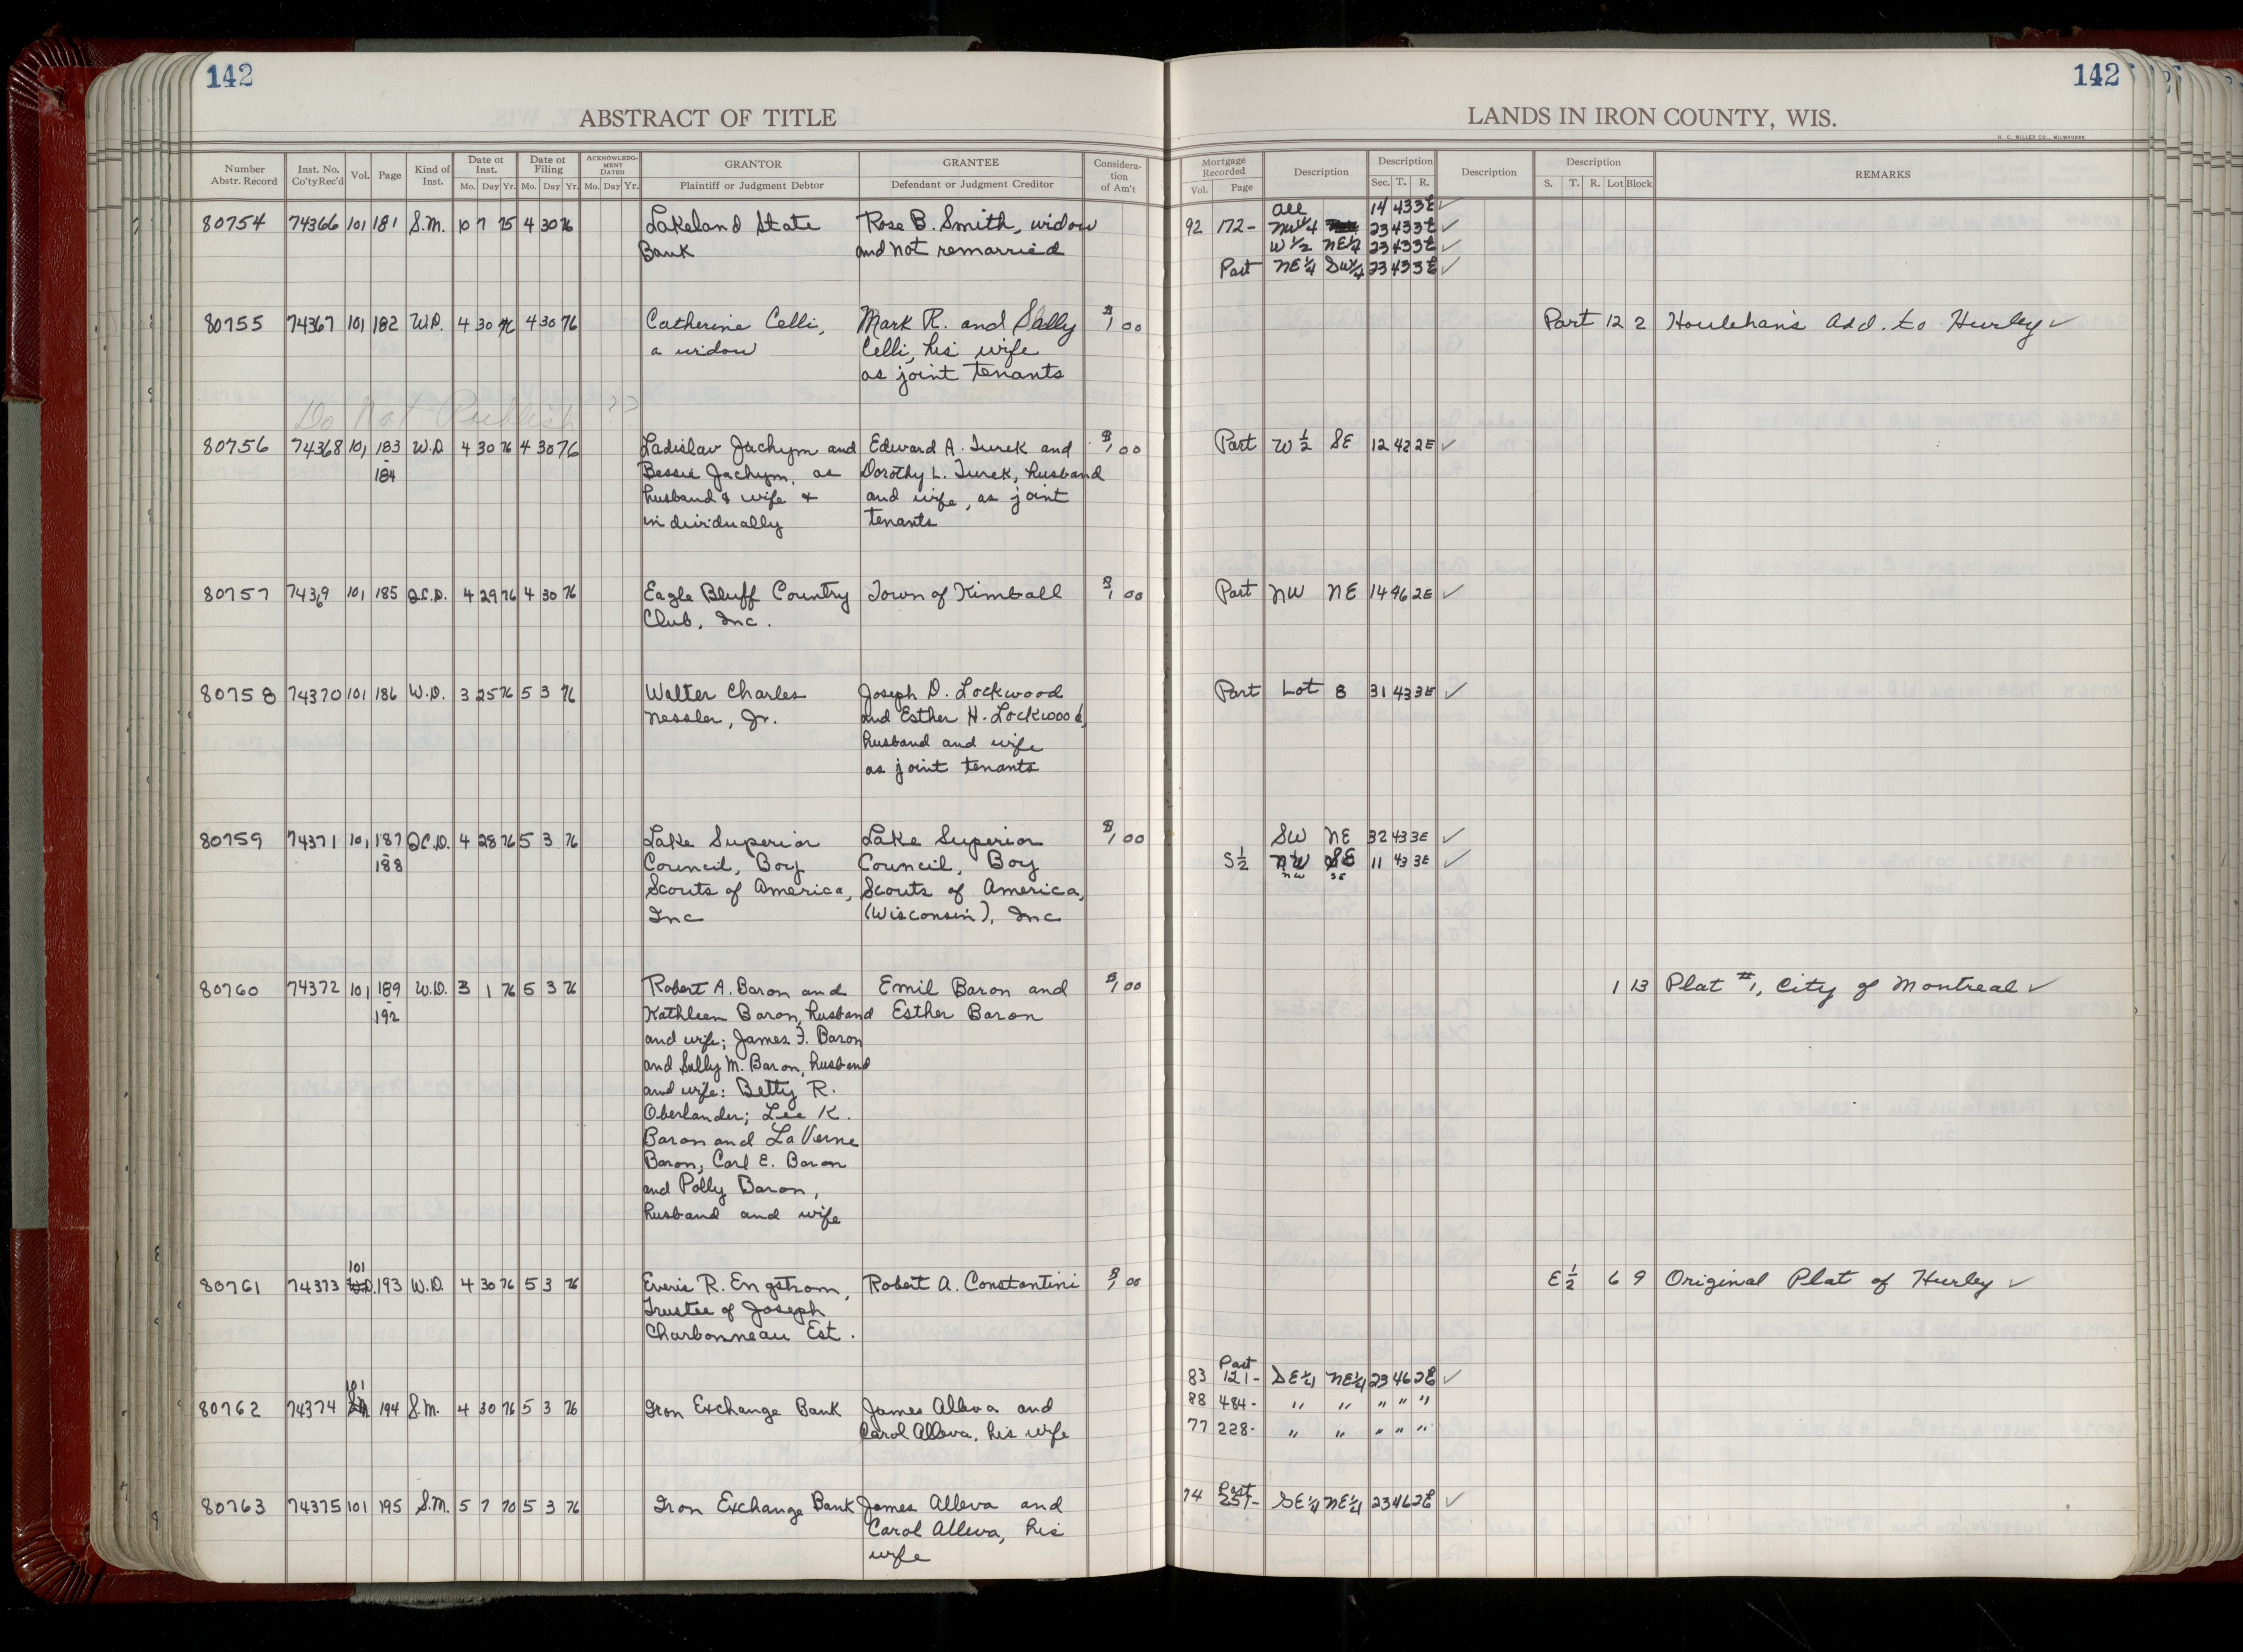 142
142
ABSTRACT OF TITLE
LANDS IN IRON COUNTY, WIS.
H. C. MILLER CO., MILWAUKEE
Number Abstr. Record
Inst. No. Co'ty Rec'd
Vol.
Page
Kind of Inst.
Date of Inst.
Mo. Day Yr.
Date of Filing
Mo. Day Yr.
ACKNOWLEDGMENT DATED
Mo. Day Yr.
GRANTOR
Plaintiff or Judgment Debtor
GRANTEE
Defendant or Judgment Creditor
Consideration of Am't
Mortgage Recorded
Vol. Page
Description
Description
Sec. T. R.
Description
Description
S. T. R. Lot Block
REMARKS
All 14 43 3E ✓
80754 74366 101 181 S.M. 10 7 75 4 30 76 Lakeland State Rose B. Smith, widow 92 172- NW1/4 23 43 3E ✓
Bank and not remarried W 1/2 NE1/4 23 43 3E ✓
Part NE1/4 SW1/4 23 43 3E ✓
80755 74367 101 182 W.D. 4 30 76 4 30 76 Catherine Celli, Mark R. and Sally $1 00 Part 12 2 Houlehan's Add. to Hurley ✓
a widow Celli, his wife
as joint tenants
Do Not Publish ??
80756 74368 101 183 W.D. 4 30 76 4 30 76 Ladislav Jachym and Edward A. Turek and $1 00 Part W 1/2 SE 12 42 2E ✓
- 184 Bessie Jachym, as Dorothy L. Turek, husband
husband & wife & and wife, as joint
individually tenants
80757 74369 101 185 Q.C.D. 4 29 76 4 30 76 Eagle Bluff Country Town of Kimball $1 00 Part NW NE 14 46 2E ✓
Club, Inc.
80758 74370 101 186 W.D. 3 25 76 5 3 76 Walter Charles Joseph D. Lockwood Part Lot 8 31 43 3E ✓
Nessler, Jr. and Esther H. Lockwood,
husband and wife
as joint tenants
80759 74371 101 187 Q.C.D. 4 28 76 5 3 76 Lake Superior Lake Superior $1 00 SW NE 32 43 3E ✓
- 188 Council, Boy Council, Boy S 1/2 NW SE 11 43 3E ✓
NW SE
Scouts of America, Scouts of America,
Inc (Wisconsin), Inc
80760 74372 101 189 W.D. 3 1 76 5 3 76 Robert A. Baron and Emil Baron and $1 00 1 13 Plat #1, City of Montreal ✓
- 192 Kathleen Baron, husband Esther Baron
and wife; James F. Baron
and Sally M. Baron, husband
and wife: Betty R.
Oberlander; Lee K.
Baron and LaVerne
Baron, Carl E. Baron
and Polly Baron,
husband and wife
101
80761 74373 W.D. 193 W.D. 4 30 76 5 3 76 Everis R. Engstrom, Robert A. Constantini $1 00 E 1/2 6 9 Original Plat of Hurley ✓
Trustee of Joseph
Charbonneau Est.
Part
83 121- SE1/4 NE1/4 23 46 2E ✓
101
80762 74374 194 S.M. 4 30 76 5 3 76 Iron Exchange Bank James Alleva and 88 484- " " " " "
Carol Alleva, his wife 77 228- " " " " "
Part
80763 74375 101 195 S.M. 5 7 70 5 3 76 Iron Exchange Bank James Alleva and 74 257- SE1/4 NE1/4 23 46 2E ✓
Carol Alleva, his
wife